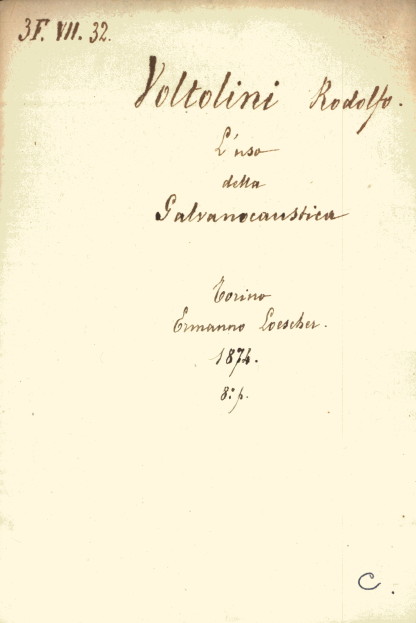 3F. VII. 32.
Voltolini Rodolfo.
L'uso
della
Galvanocaustica
Torino
Ermanno Loescher.
1874.
8.° p.
C.